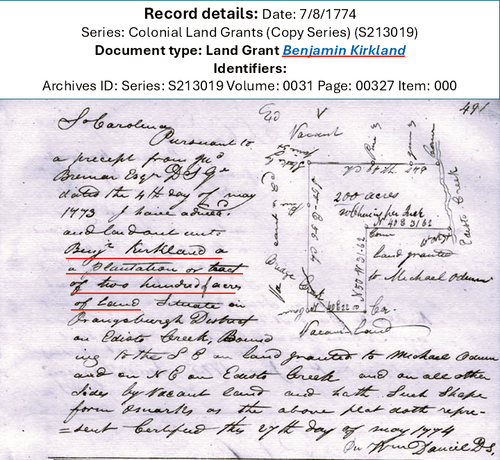 Record details: Date: 7/8/1774
Series: Colonial Land Grants (Copy Series) (S213019)
Document type: Land Grant Benjamin Kirkland
Identifiers:
Archives ID: Series: S213019 Volume: 0031 Page: 00327 Item: 000
491
So Carolina
Pursuant to
a precept from Jno
Bremar Esqr D S Gl
dated the 4th day of may
1773 I have admd.
and laid out unto
Benjn Kirkland a
a Plantation or tract
of two hundred acres
of Land Situate in
Orangeburgh District
on Edisto Creek, Bound
ing to the S E on land granted to Michael Odum
and on N E on Edisto Creek and on all other
sides by Vacant land and hath Such Shape
form & marks as the above plat doth repre-
=sent Certified this 27th day of may 1774
Wm Daniel D S
Vacant
200 acres
Edisto Creek
land granted
to Michael Odum
Vacant Land